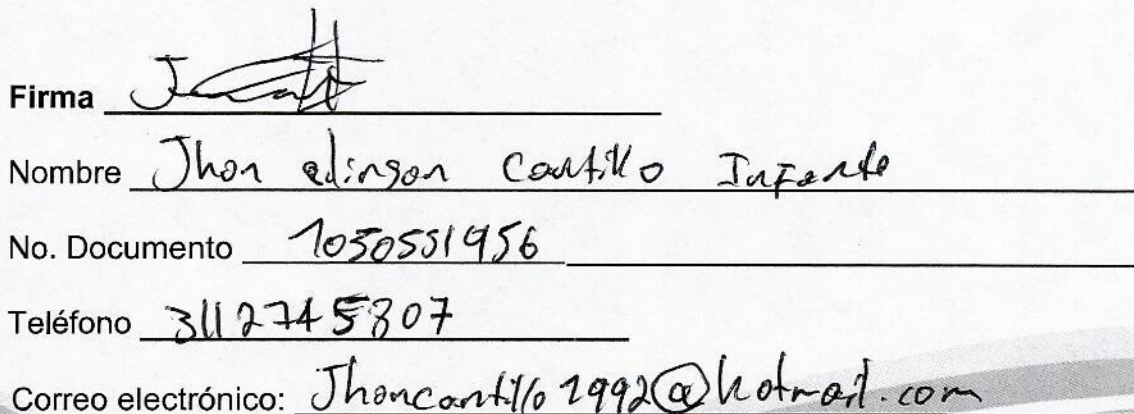 Firma
Nombre Jhon edinson Cantillo Infante
No. Documento 1050551956
Teléfono 3112745807
Correo electrónico: Jhoncantillo1992@hotmail.com